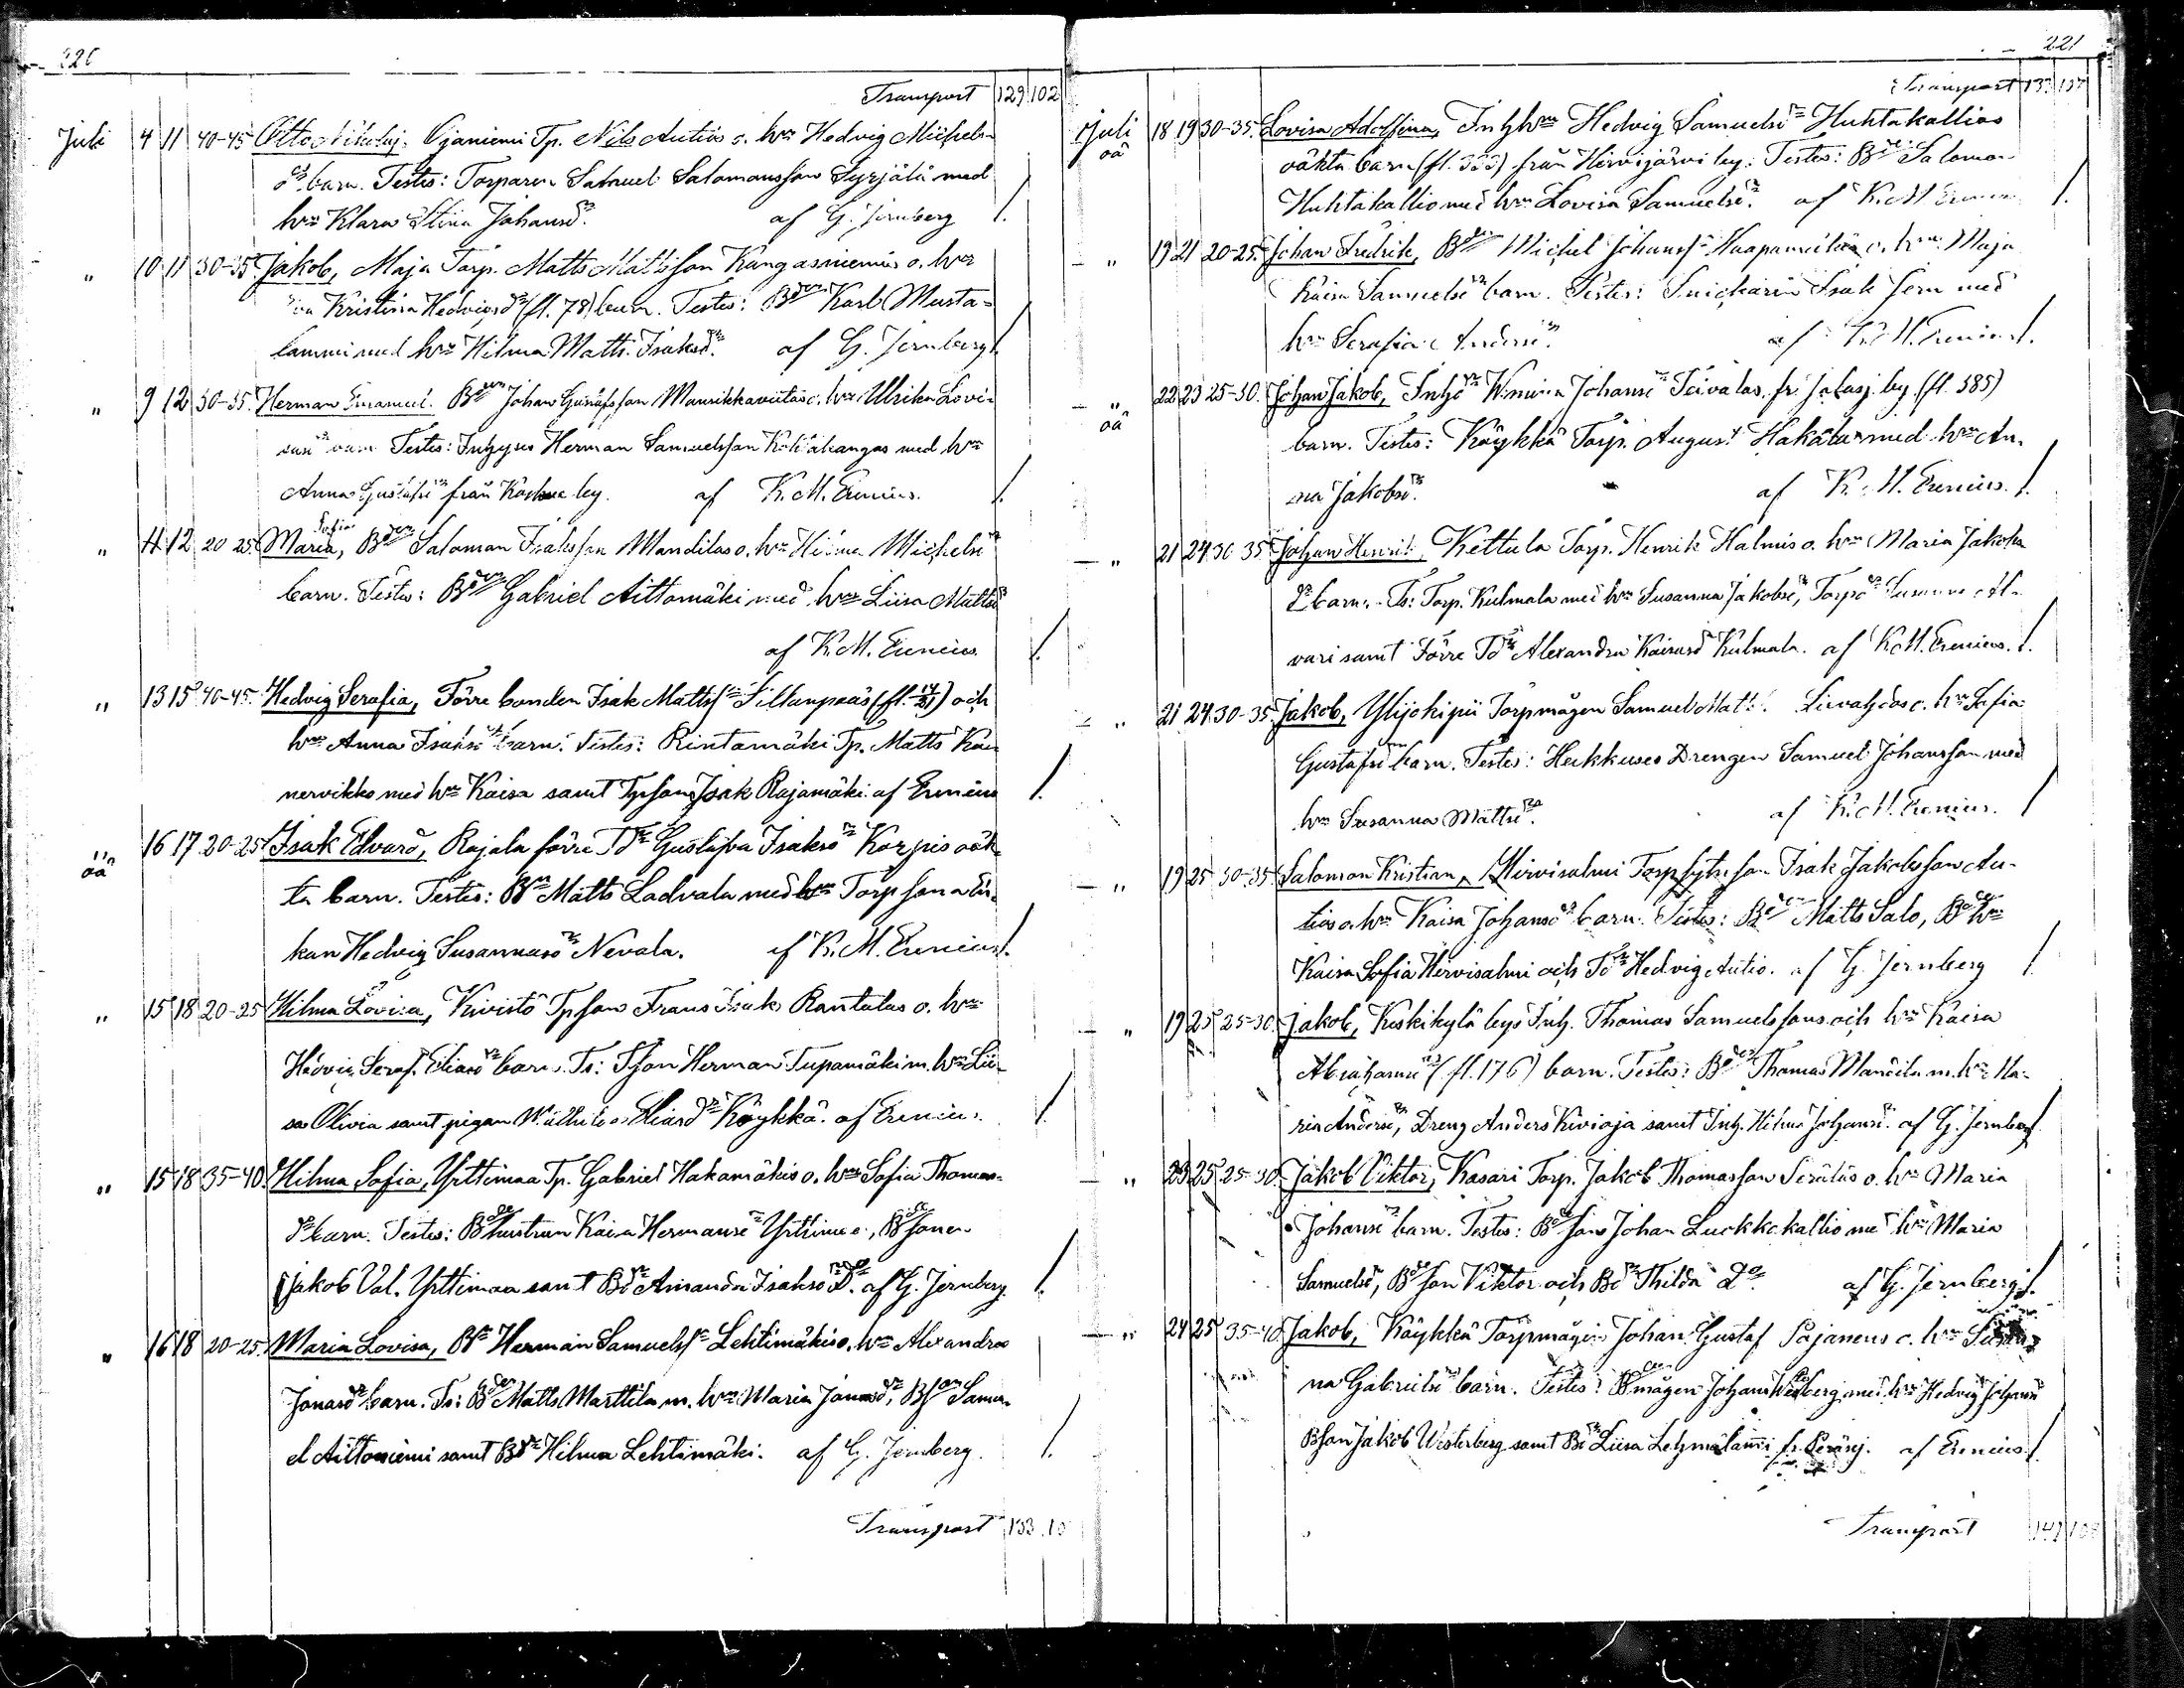 220
Transport 129 102
Juli 4 11 40-45 Otto Nikolaj, Ojaniemi Tp. Nils Autios o. hru Hedvig Michels-
dr barn. Testes: Torparen Samuel Salomonsson Syrjälä med
hru Klara Stina Johansdr. af G. Jernberg /.
" 10 11 30-35 Jakob, Maja Torp. Matts Mattsson Kangasniemis o. hru
Kristina Hedvigsdr (fl. 78) barn. Testes: Bden Karl Musta-
lammi med hru Hilma Matts Isaksdr. af G. Jernberg /.
" 9 12 30-35. Herman Emanuel. Bden Johan Gustafsson Mannikkaviitas o. hru Ulrika Lovi-
barn Testes: Inhyses Herman Samuelsson med hru
Anna Gustafsdr från by. af K. M. Erenius. /.
" 11 12 20 25. Maria Sofia, Bden Salomon Isaksson Mandilas o. hru Hilma Michelsdr
barn. Testes: Bden Gabriel Aittomäki med hru Liisa Mattsdr
af K. M. Erenius /.
" 13 15 40-45. Hedvig Serafia, Förre bonden Isak Mattss. Sillanpääs (fl. ) och
hru Anna Isaksdr barn. Testes: Rintamäki Tp. Matts Kai-
nervikko med hru Kaisa samt Tpson Isak Rajamäki. af Erenius /.
" oä 16 17 20-25 Isak Edvard, Rajala förre Tdr Gustafva Isaksdr Korpis oäk-
ta barn. Testes: Bdn Matts Ladvala med hru Torpson
kan Hedvig Susannasdr Nevala. af K. M. Erenius /.
" 15 18 20-25 Hilma Lovisa, Kivistö Tpson Frans Isaks Rantalas o. hru
Hedvig Seraf. Eliasdr barn. Ts: Tson Herman Tupamäki m. hru Lii-
sa Olivia samt pigan Eliasdr Köykkä. af Erenius. /
" 15 18 35-40. Hilma Sofia, Yrttimaa Tp. Gabriel Hakamäkis o. hru Sofia Thomas-
dr barn. Testes: Bdehustrun Kaisa Hermansdr Yrttimaa, Bdesonen
Jakob Val. Yrttimaa samt Bdr Amanda Isaksdr Do. af G. Jernberg. /.
" 16 18 20-25. Maria Lovisa, Bdn Herman Samuelss. Lehtimäkis o. hru Alexandra
Jonasdr barn. Ts: Bden Matts Marttila m. hru Maria Jonasdr, Bson Samu-
el Aittoniemi samt Bdr Hilma Lehtimäki. af G. Jernberg. /.
Transport 133
221
Transport 133
Juli oä 18 19 30-35. Lovisa Adolfina, Inhhru Hedvig Samuelsdr Huhtakallios
oäkta barn (fl. 333) från Hirvijärvi by. Testes: Bden Salomon
Huhtakallio med hru Lovisa Samuelsdr. af K. M. Erenius /.
" 19 21 20-25. Johan Fredrik, Bden Michel Johanss. Haapamäkis o. hru Maja
Kaisa Samuelsdr barn. Testes: Snickaren Isak Jern med
hru Serafia Andersdr. af K. M. Erenius /.
" oä 22 23 25-30. Johan Jakob, Inhdr Wimma Johansdr Toivalas, fr. Jalasj. by (fl. 385)
barn. Testes: Köykkä Torp. August Hakala med hru An-
na Jakobsdr. af K. M. Erenius. /.
" 21 24 30 35. Johan Henrik, Kettula Torp. Henrik Halmis o. hru Maria Jakobs
dr barn. Ts: Torp. Kulmala med hru Susanna Jakobsdr, Torpdr
vari samt Förre Tdr Alexandra Kaisasdr Kulmala. af K. M. Erenius. /.
" 21 24 30-35. Jakob, Ylijokipii Torpmågen Samuel Matts. o. hru Sofia
Gustafsdr barn. Testes: Heikkuses Drengen Samuel Johansson med
hru Susanna Mattsdr. af K. M. Erenius. /
" 19 25 30-35. Salomon Kristian, Hirvisalmi Torpsytn. son Isak Jakobsson Au-
tios o. hru Kaisa Johansdr barn. Testes: Bden Matts Salo, Bde hru
Kaisa Sofia Hervisalmi och Tdr Hedvig Autio. af G. Jernberg /.
" 19 25 25-30. Jakob, Keskikylä bys Inh. Thomas Samuelssons och hru Kaisa
Abrahamsdr (fl. 176) barn. Testes: Bden Thomas Mandila m. hru Ma-
ria Andersdr, Dreng Anders Kivioja samt Inh. Hilma Johansdr. af G. Jernberg /.
" 23 25 25-30. Jakob Viktor, Kasari Torp. Jakob Thomasson Seräläs o. hru Maria
Johansdr barn. Testes: Bdeson Johan Luekkokallio med hru Maria
Samuelsdr, Bdeson Viktor och Bdr Thilda Do. af G. Jernberg /.
" 24 25 35-40. Jakob, Köykkä Torpmågen Johan Gustaf Pajanens o. hru Susan-
na Gabrielsdr barn. Testes: Bdemågen Johan Westerberg med hru Hedvig Johansdr
Bson Jakob Westerberg samt Bdr Liisa Lehmälammi fr. Peräsj. af Erenius /.
Transport 141